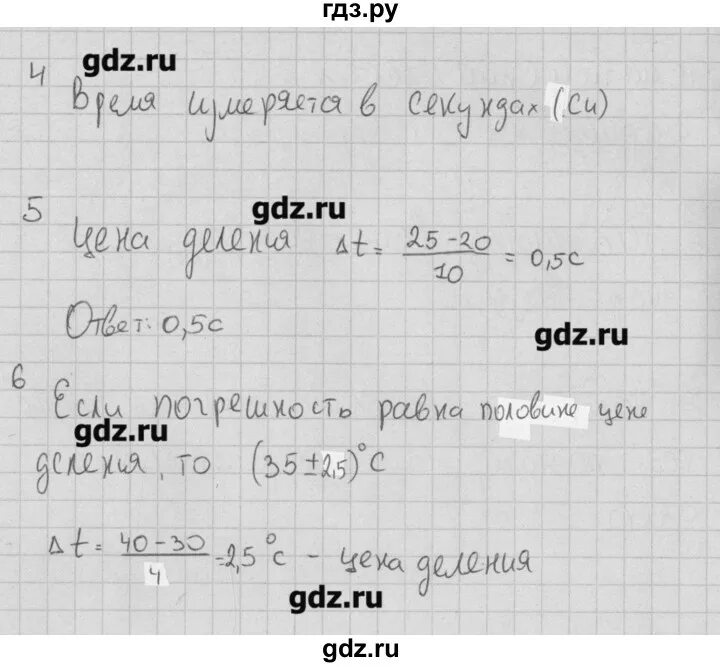 гдз.ру
gdz.ru
4
Время измеряется в секундах (Си)
gdz.ru
5
Цена деления Δt = (25-20)/10 = 0,5с
Ответ: 0,5с
gdz.ru
6
Если погрешность равна половине цене
gdz.ru
деления, то (35±2,5)°С
Δt = (40-30)/4 = 2,5°с - цена деления
gdz.ru
gdz.ru